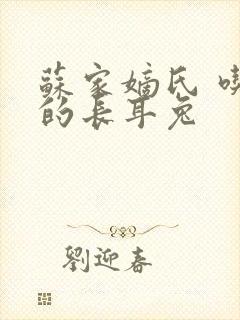 蘇家嫡氏
的長耳兔
劉迎春